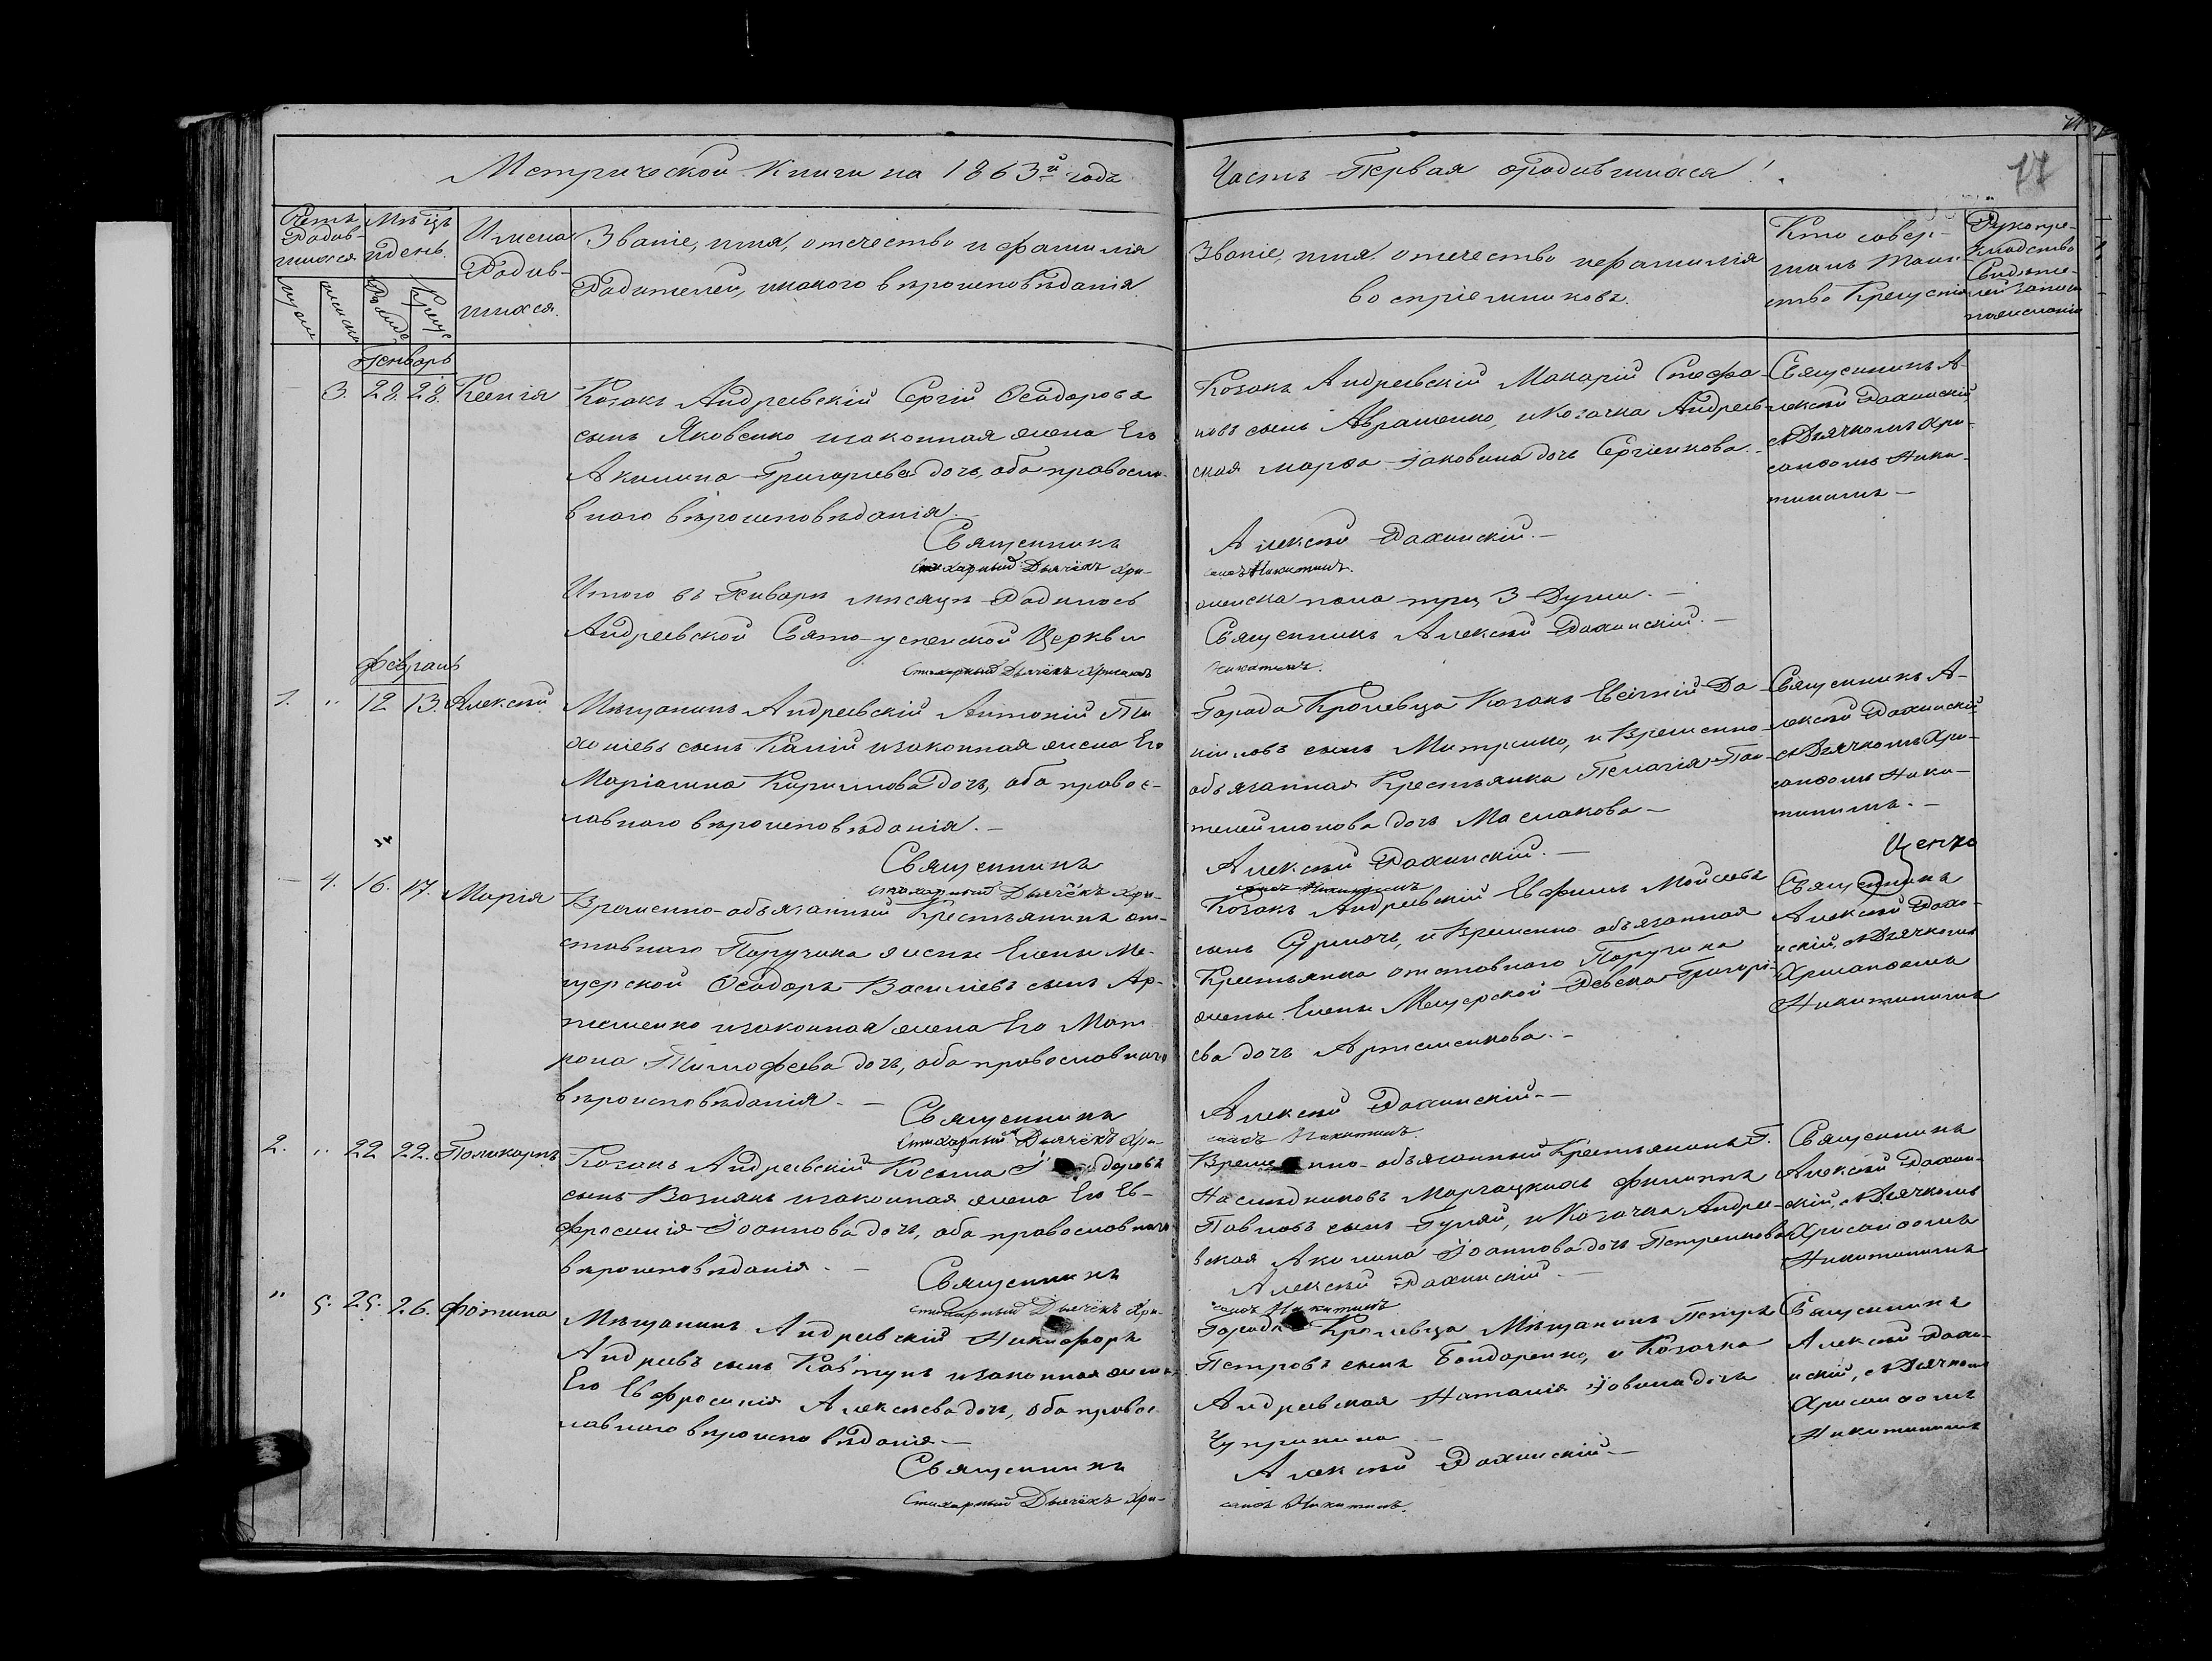 Метрической Книги на 1863й годъ
Часть Первая о родившихся
17
Счетъ Родив-шихся
Мѣсяцъ и день.
Имена Родив-шихся.
Званіе, имя, отечество и фамилія
Родителей, и какого вѣроисповѣданія
Званіе, имя, отечество и фамилія
воспріемниковъ.
Кто совер-
шалъ Таин-
ство Крещенія
Рукопри-
кладство
Свидѣте-
лей записи
Генварь
3. 28. 28. Ксенія
Козакъ Андреевскій Сергій Ѳеодоровъ
сынъ Яковенко и законная жена Его
Акилина Григорьева дочь, оба правосла-
внаго вѣроисповѣданія.
Священникъ
Стихарный Дьячёкъ Хри-
Козакъ Андреевскій Макарій Стефа-
новъ сынъ Авраменко, и Козачка Андреев-
ская Марѳа Іаковлева дочь Сергіенкова.
Алексѣй Рахинскій.
санѳъ Никитинъ.
Священникъ А-
лексѣй Рахинскій
съ Дьячкомъ Хри-
санѳомъ Ники-
тинымъ
Итого въ Генварѣ мѣсяцѣ Родилось
женска пола три 3 Души.
Андреевской Свято-успенской Церкви
Священникъ Алексѣй Рахинскій.
Стихарный Дьячёкъ Хрисанѳъ
Никитинъ.
февраль
1. " 12 13. Алексѣй
Мѣщанинъ Андреевскій Антоній Ти-
хоніевъ сынъ Калій и законная жена Его
Маріамна Кириллова дочь, оба правос-
лавнаго вѣроисповѣданія.
Священникъ
Стихарный Дьячёкъ Хри-
Города Кролевца Козакъ Евсѣвій Да-
ніиловъ сынъ Митченко, и Временно-
обязанная Крестьянка Пелагія Пан-
телеймонова дочь Маслакова
Алексѣй Рахинскій.
санѳъ Никитинъ
Священникъ А-
лексѣй Рахинскій
съ Дьячкомъ Хри-
санѳомъ Ники-
тинымъ.
4. 16. 17. Марія
Временно-обязанный Крестьянинъ от-
ставнаго Поручика жены Елены Ме-
щерской Ѳеодоръ Василіевъ сынъ Ар-
теменко и законная жена Его Мат-
рона Тимофеева дочь, оба православнаго
вѣроисповѣданія.
Священникъ
Стихарный Дьячёкъ Хри-
Козакъ Андреевскій Евфимъ Мойсеевъ
сынъ и Временно обязанная
Крестьянка отставного Поручика
жены Елены Мещерской Девека Григорі-
ева дочь Артеменкова.
Алексѣй Рахинскій.
санѳъ Никитинъ.
Священникъ
Алексѣй Рахи-
нскій, съ Дьячкомъ
Хрисанѳомъ
Никитинымъ
2. " 22 22. Поликарпъ
Козакъ Андреевскій Косьма
сынъ Вознякъ и законная жена Его Ев-
фросинія Іоаннова дочь, оба православнаго
вѣроисповѣданія.
Священникъ
Стихарный Дьячёкъ Хри-
Временно-обязанный Крестьянинъ Г.
Наслѣдниковъ Маргацкихъ Филиппъ
Павловъ сынъ Гуляй, и Козачка Андрее-
вская Акилина Іоаннова дочь Петренкова
Алексѣй Рахинскій.
санѳъ Никитинъ
Священникъ
Алексѣй Рахин-
скій, съ Дьячкомъ
Хрисанѳомъ
Никитинымъ
" 5. 25. 26. Фотина
Мѣщанинъ Андреевскій Никифоръ
Андреевъ сынъ Ковтунъ и законная жена
Его Евфросинія Алексѣева дочь, оба правос-
лавнаго вѣроисповѣданія
Священникъ
Стихарный Дьячёкъ Хри-
Города Кролевца Мѣщанинъ Петръ
Петровъ сынъ Бондаренко, и Козачка
Андреевская Наталія Іовлева дочь
Чуприна
Алексѣй Рахинскій
санѳъ Никитинъ.
Священникъ
Алексѣй Рахи-
нскій, съ Дьячкомъ
Хрисанѳомъ
Никитинымъ